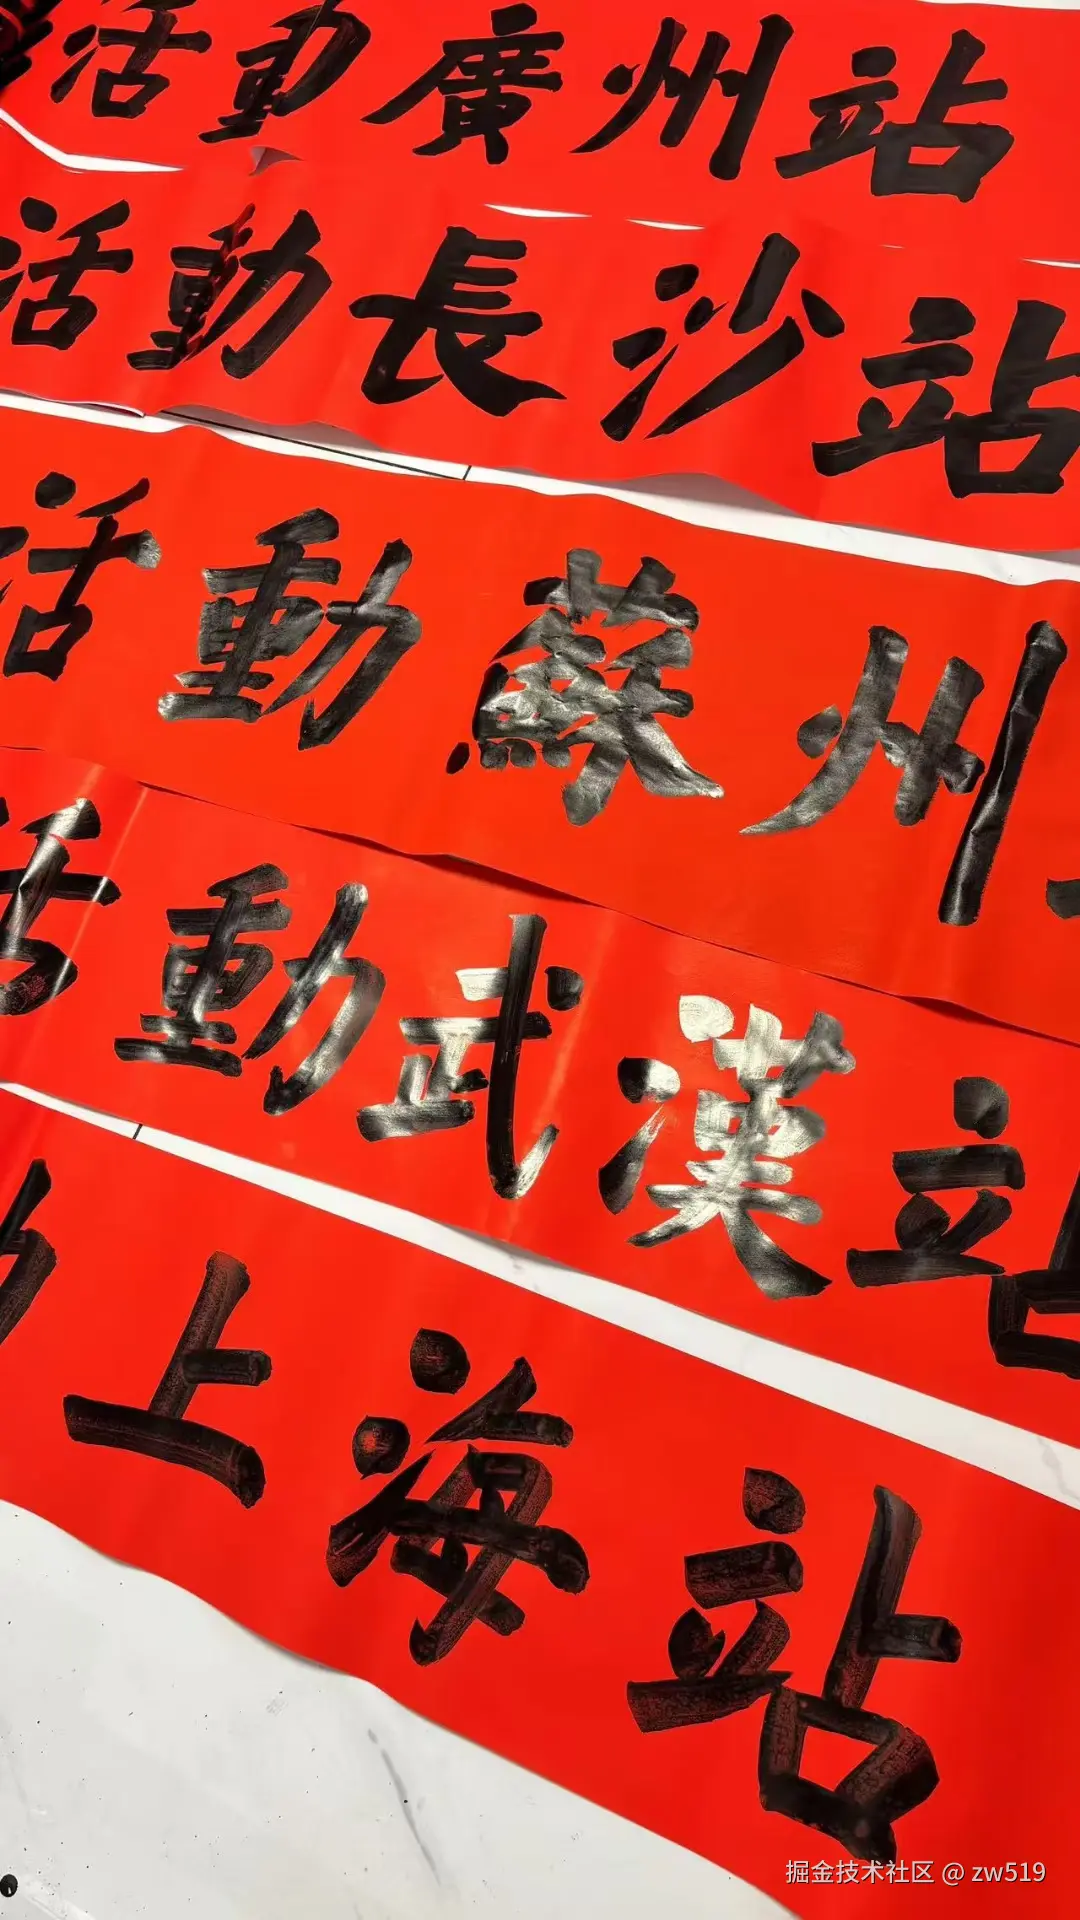 活動廣州站
活動長沙站
活動蘇州
活動武漢站
動上海站
掘金技术社区 @ zw519